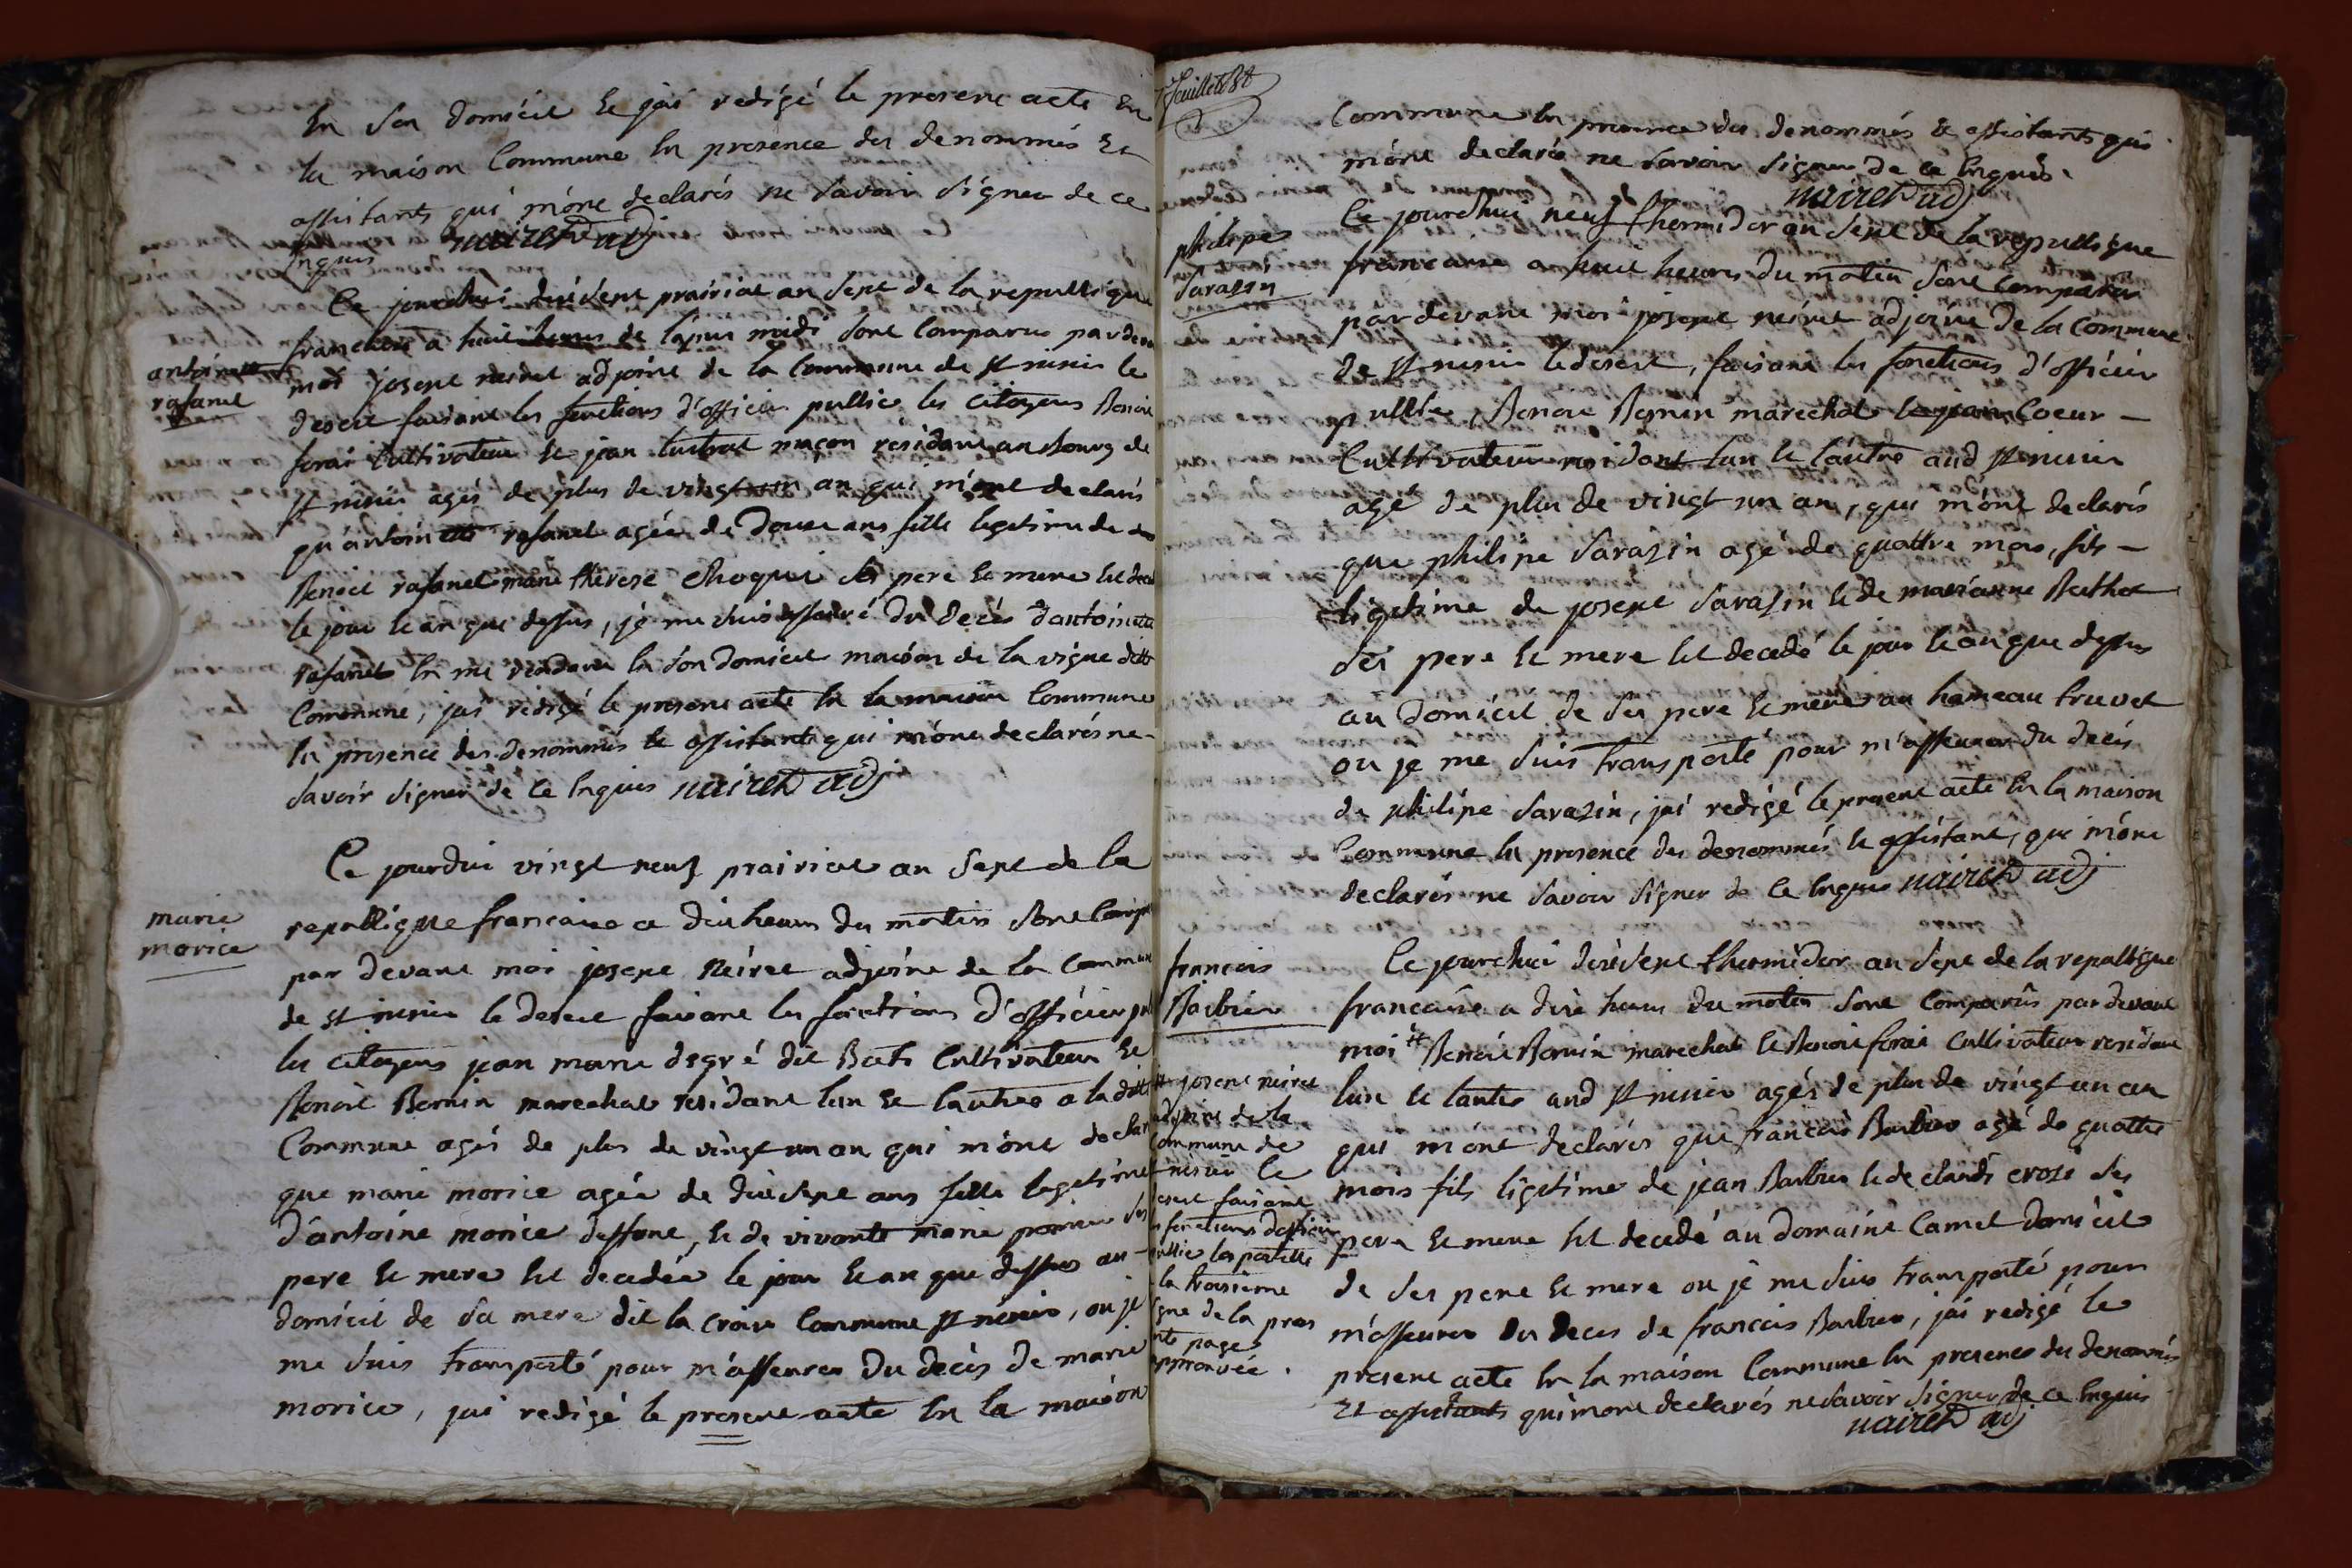 en son domicil et jai redigé le present acte en
la maison Commune en presence des denommés et
assistants qui m'ont declarés ne savoir signer de ce
enquis nairet adj
antoinette
rafanel
Ce jourdhui dix sept prairial an sept de la republique
francaise a huit heures de lapres midi sont Comparus par devant
moi josept neiret adjoint de la Commune de st nisier le
desert faisant les fonctions d'officier public les citoyens Benoit
forai Cultivateur et jean maçon residant au bourg de
st nisier agés de plus de vingt un an qui m'ont declarés
qu'antoinette rafanel agée de douze ans fille legitime de
Benoit rafanel marie therese Choquet ses pere et mere est decedé
le jour et an que dessus, je me suis assuré du decès d'antoinette
rafanel en me rendant en son domicil maison de la vigne ditte
Commune, jai redigé le present acte en la maison Commune
en presence des denommés et assistants qui m'ont declarés ne
savoir signer de ce enquis nairet adj
marie
morice
Ce jourdui vingt neuf prairial an sept de la
republique francaise a dix heures du matin sont Comparus
par devant moi josept Neiret adjoint de la Commune
de st nisier le desert faisant les fonctions d'officier pu
les citoyens jean marie degré dit Bati Cultivateur et
Benoit Bernin marechal residant lun et lautre a la ditte
Commune agés de plus de vingt un an qui m'ont declar
que marie morice agée de dix sept ans fille legitime
d'antoine morice deffunt, et de vivante marie ses
pere et mere est decedée le jour et an que dessus au
domicil de sa mere dit la croix Commune st nisier, ou je
me suis transporté pour m'asseurer du decès de marie
morice, jai redigé le present acte en la maison
feuillet
Commune en presence des denommés et assistants qui
m'ont declarés ne savoir signer de ce enquis.
nairet adj
philipe
Sarazin
Ce jourdhui neuf thermidor an sept de la republique
francaise a huit heures du matin sont Comparus
par devant moi josept neiret adjoint de la Commune
de st nisier le desert, faisant les fonctions d'officier
public, Benoit Bernin marechal et jean Coeur
Cultivateur residant lun et lautre aud st nisier
agé de plus de vingt un an, qui m'ont declarés
que philipe Sarazin agé de quattre mois, fils
ligitime de josept Sarazin et de marianne Bethot
ses pere et mere est decedé le jour et an que dessus
au domicil de ses pere et mere au hameau truvet
ou je me suis transporté pour m'asseurer du decès
de philipe Sarazin, jai redigé le present acte en la maison
Commune en presence des denommés et assistant, qui m'ont
declarés ne savoir signer de ce enquis nairet adj
francois
Barbier
Ce jourdhui dix sept thermidor an sept de la republique
francaise a dix heures du matin sont Comparus par devant
moi # Benoit Bernin marechal et Benoit forai Cultivateur residant
lun et lautre aud st nisier agés de plus de vingt un an
qui m'ont declarés que francois Barbier agé de quattre
mois fils ligitime de jean Barbier et de claudi crozi ses
pere et mere est decedé au domaine Camet domicil
de ses pere et mere ou je me suis transporté pour
m'asseurer du deces de francois Barbier, jai redigé le
present acte en la maison Commune en presence des denommés
et assistants qui mont declarés ne savoir signer de ce enquis
nairet adj
# josept neiret
adjoint de la
Commune de
st nisier le
desert faisant
les fonctions d'officier
public
la troisieme
ligne de la pres
ente page
approuvée.